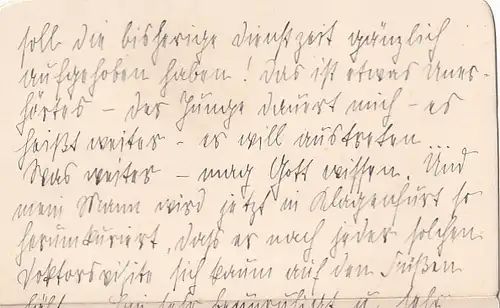 soll die bisherige Dienstzeit gänzlich
aufgehoben haben! Das ist etwas Uner-
hörtes – der Junge dauert mich – es
heißt weiter – er will austreten ...
Was weiter – mag Gott wissen. Und
mein Mann wird jetzt in Klagenfurt so
herumkuriert, dass er nach jeder solchen
Doktorvisite sich kaum auf den Füßen
hält. Bin sehr beunruhigt u. sehr